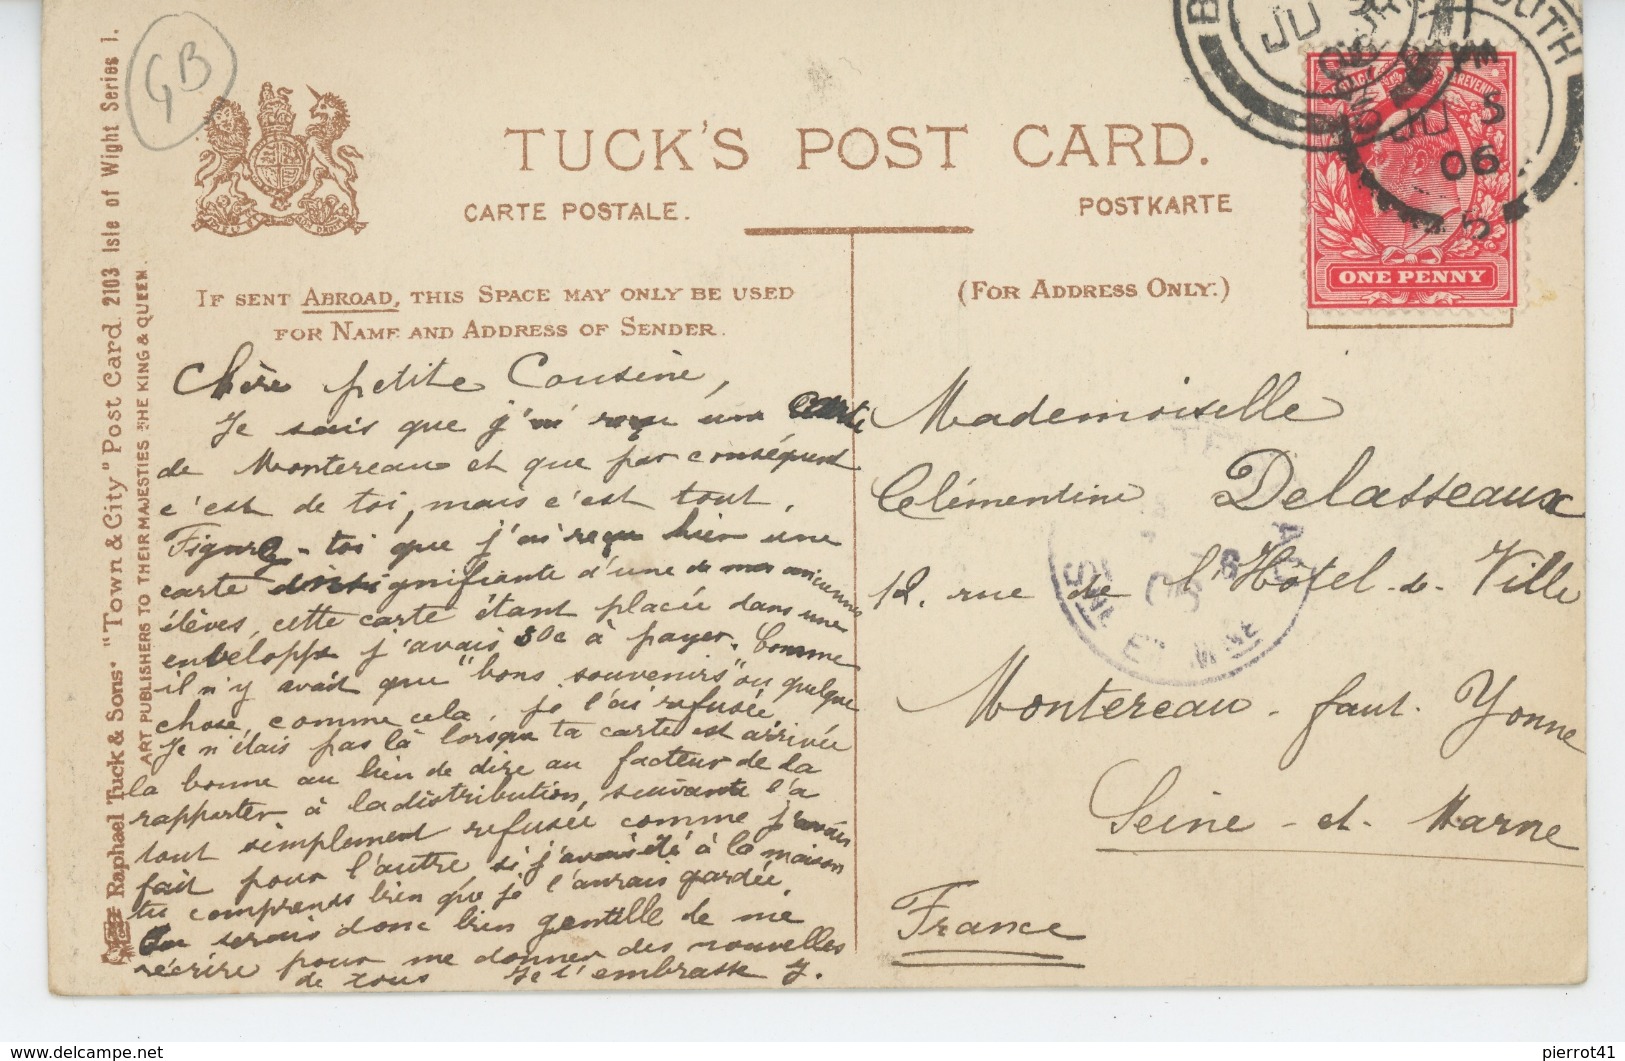 GB
TUCK'S POST CARD.
CARTE POSTALE.
POSTKARTE
IF SENT ABROAD, THIS SPACE MAY ONLY BE USED
FOR NAME AND ADDRESS OF SENDER.
(FOR ADDRESS ONLY.)
ONE PENNY
JU 5
06
Raphael Tuck & Sons' "Town & City" Post Card 2103 Isle of Wight Series I.
ART PUBLISHERS TO THEIR MAJESTIES THE KING & QUEEN.
Chère petite Cousine,
Je sais que j'ai reçu une carte
de Montereau et que par conséquent
c'est de toi, mais c'est tout.
Figure-toi que j'ai reçu hier une
carte insignifiante d'une de mes anciennes
élèves, cette carte étant placée dans une
enveloppe j'avais 50c à payer. Comme
il n'y avait que "bons souvenirs" ou quelque
chose, comme cela, je l'ai refusée
Je n'étais pas là lorsque ta carte est arrivée
la bonne au lieu de dire au facteur de la
rapporter à la distribution, suivante l'a
tout simplement refusée comme j'avais
fait pour l'autre, si j'avais été à la maison
tu comprends bien que je l'aurais gardée.
Tu serais donc bien gentille de me
réécrire pour me donner des nouvelles
de tous Je t'embrasse J.
Mademoiselle
Clémentine Delasseaux
12. rue de l'Hôtel-de-Ville
Montereau-faut-Yonne
Seine-et-Marne
France
SEINE ET MNE
delcampe.net
pierrot41